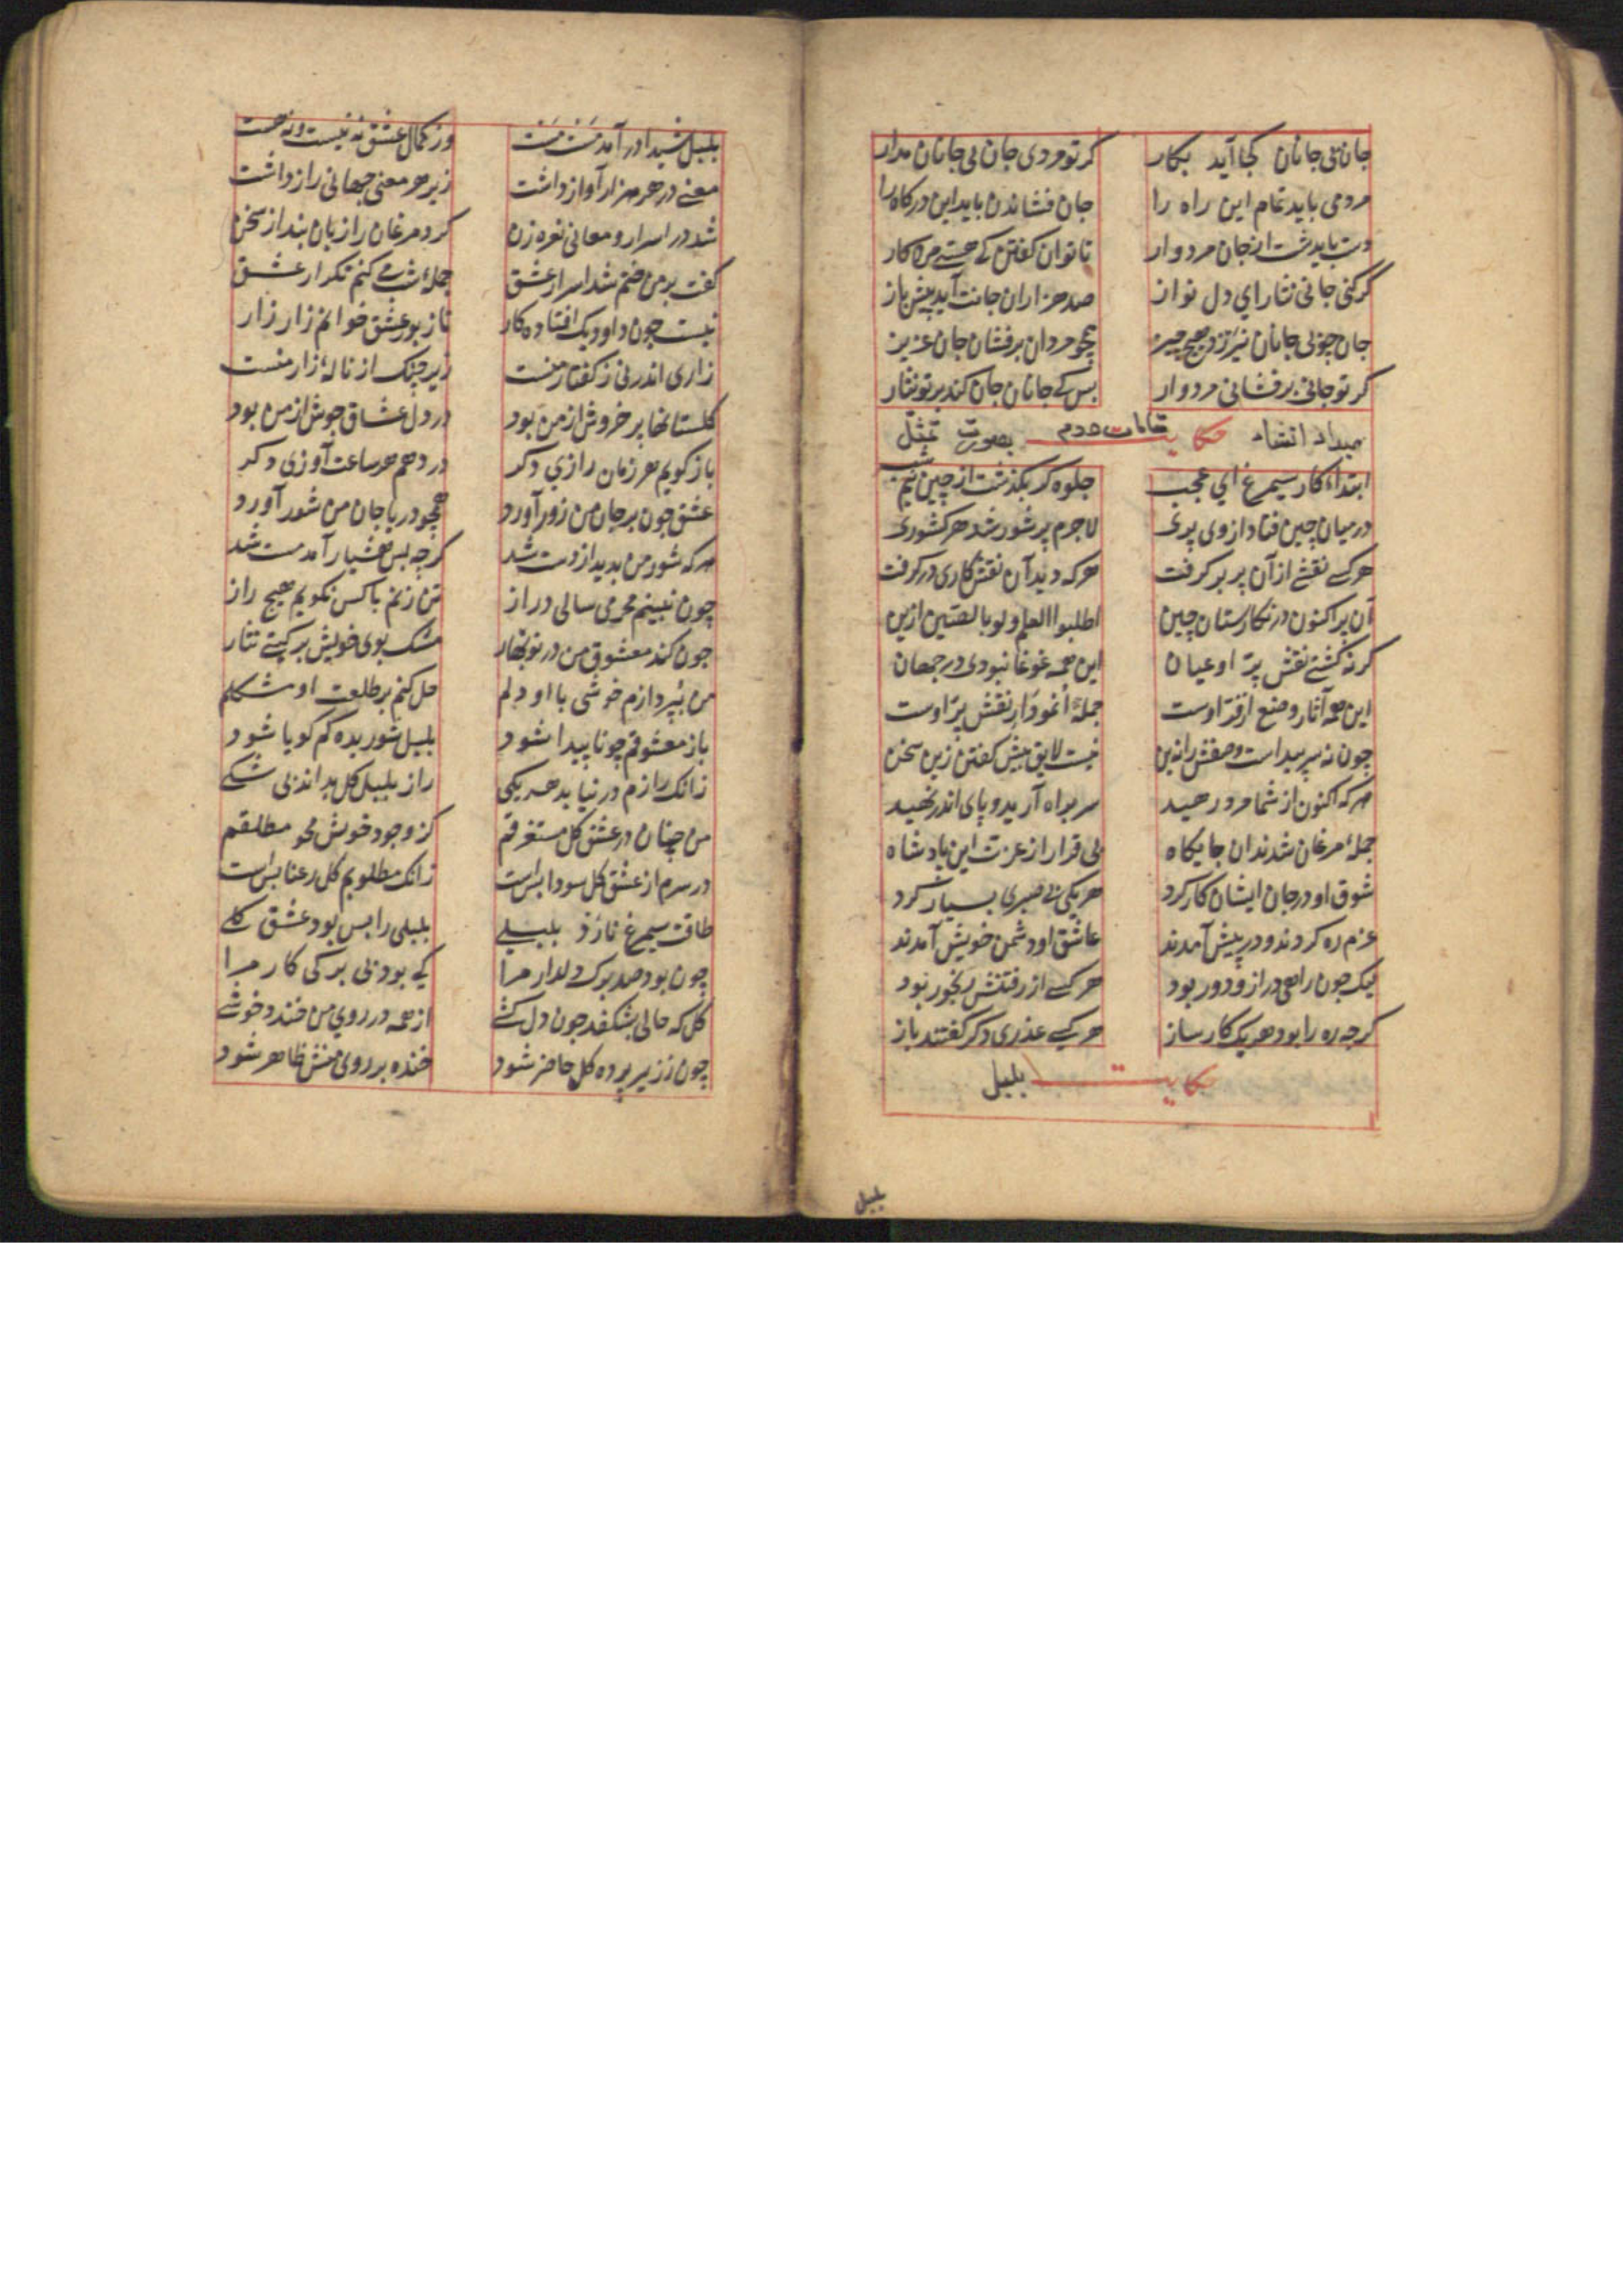 جان بی جانان کجا آید بکار کر تو مردی جان بی جانان مدار
مردمی باید تمام این راه را جان فشاندن باید این درکاه را
دست باید شست از جان مردوار تا توان کفتن که هستی مرد کار
کر کنی جانی نثار ای دل نواز صد هزاران جانت آید پیش باز
جان چو بی جانان نیرزد هیچ چیز همچو مردان برفشان جان عزیز
کر تو جانی برفشانی مردوار بس که جانان جان کند بر تو نثار
حکایت بصورت تمثل
ابتداء کار سیمرغ ای عجب جلوه کر بکذشت از چین نیم شب
در میان چین فتاد از وی پری لاجرم پر شور شد هر کشوری
هر کسی نقشی از آن پر بر کرفت هر که دید آن نقش کاری در کرفت
آن پر اکنون در نکارستان چین اطلبوا العلم ولو بالصین ازین
کر نه کشتی نقش پر او عیان این همه غوغا نبودی در جهان
این همه آثار وضع از فر اوست جمله انمودار نقش پر اوست
چون نه سر پیداست وصفش را نه بن نیست لایق بیش کفتن زین سخن
هر که اکنون از شما مرد رهید سر براه آرید و پای اندر نهید
جمله مرغان شدند ان جایکاه بی قرار از عزت این پادشاه
شوق او در جان ایشان کار کرد هر یکی بی صبری بسیار کرد
عزم ره کردند و در پیش آمدند عاشق او دشمن خویش آمدند
لیک چون راهی دراز و دور بود هر کسی از رفتنش رنجور بود
کرچه ره را بود هر یک کار ساز هر یکی عذری دکر کفتند باز
حکایت بلبل
بلبل
بلبل شیدا در آمد مست مست وز کمال عشق نه نیست و نه هست
معنی در هر هزار آواز داشت زیر هر معنی جهانی راز داشت
شد در اسرار و معانی نعره زن کرد مرغان را زبان بند از سخن
کفت بر من ختم شد اسرار عشق جمله شب می کنم تکرار عشق
نیست چون داود یک افتاده کار تا زبور عشق خوانم زار زار
زاری اندر نی ز کفتار منست زیر چنک از ناله زار منست
کلستانها پر خروش از من بود در دل عشاق جوش از من بود
باز کویم هر زمان رازی دکر در دهم هر ساعت آوازی دکر
عشق چون بر جان من زور آورد همچو دریا جان من شور آورد
هر که شور من بدید از دست شد کرچه بس هشیار آمد مست شد
چون نبینم محرمی سالی دراز تن زنم با کس نکویم هیچ راز
چون کند معشوق من در نوبهار مشک بوی خویش بر کیتی نثار
من بپردازم خوشی با او دلم حل کنم بر طلعت او مشکلم
باز معشوقم چو ناپیدا شود بلبل شوریده کم کویا شود
زانک رازم در نیابد هر یکی راز بلبل کل بداند بی شکی
من چنان در عشق کل مستغرقم کز وجود خویش محو مطلقم
در سرم از عشق کل سودا بس است زانک مطلوبم کل رعنا بس است
طاقت سیمرغ نارد بلبلی بلبلی را بس بود عشق کلی
چون بود صد برک دلدار مرا کی بود بی برکی کار مرا
کل که حالی بشکفد چون دل کشی از همه در روی من خندد خوشی
چون ز زیر پرده کل حاضر شود خنده بر روی منش ظاهر شود